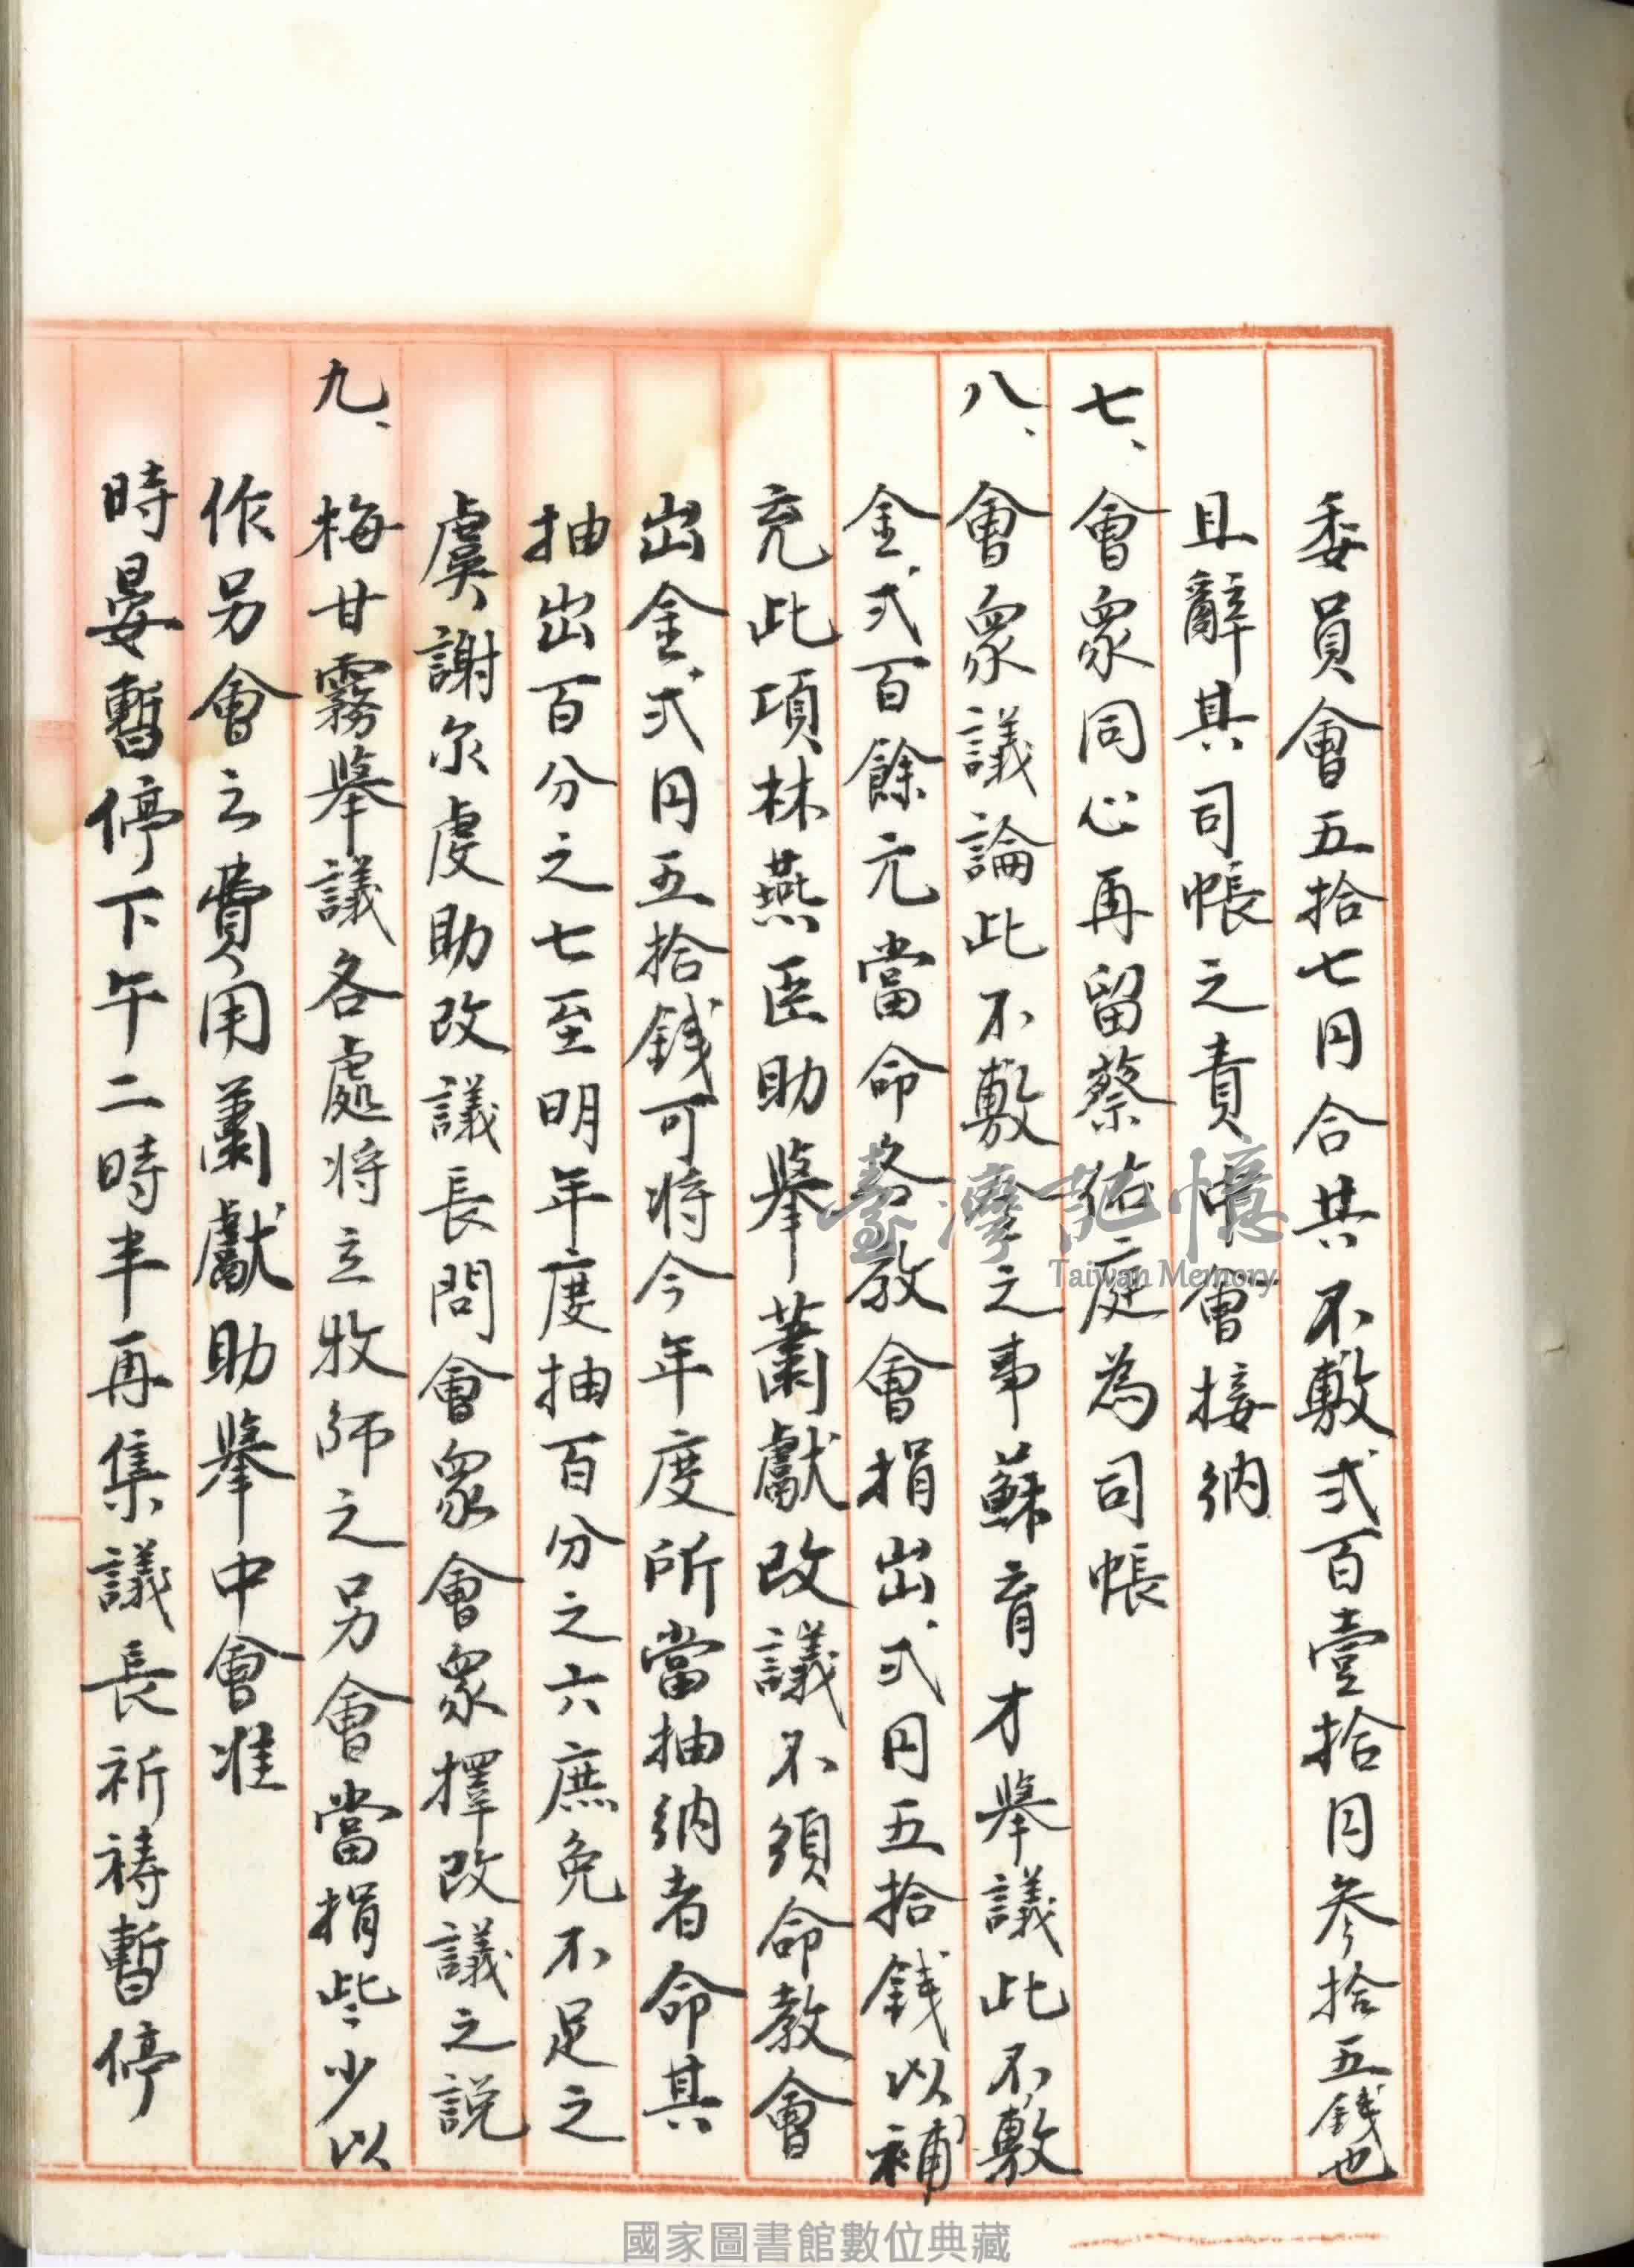 委員會五拾七円合共不敷弍百壹拾円参拾五錢也
且辭其司帳之責中會接納
七、會眾同心再留蔡佑庭為司帳
八、會眾議論此不敷金之事蘇育才舉議此不敷
金弍百餘元當命各教會捐出弍円五拾錢以補
充此項林燕臣助舉蕭獻改議不須命教會
出金弍円五拾錢可將今年度所當抽納者命其
抽出百分之七至明年度抽百分之六庶免不足之
虞謝尔虔助改議長問會眾會眾擇改議之說
九、梅甘霧舉議各處將立牧師之另會當捐些少以
作另會之費用蕭獻助舉中會准
時晏暫停下午二時半再集議長祈禱暫停
臺灣記憶
Taiwan Memory
國家圖書館數位典藏